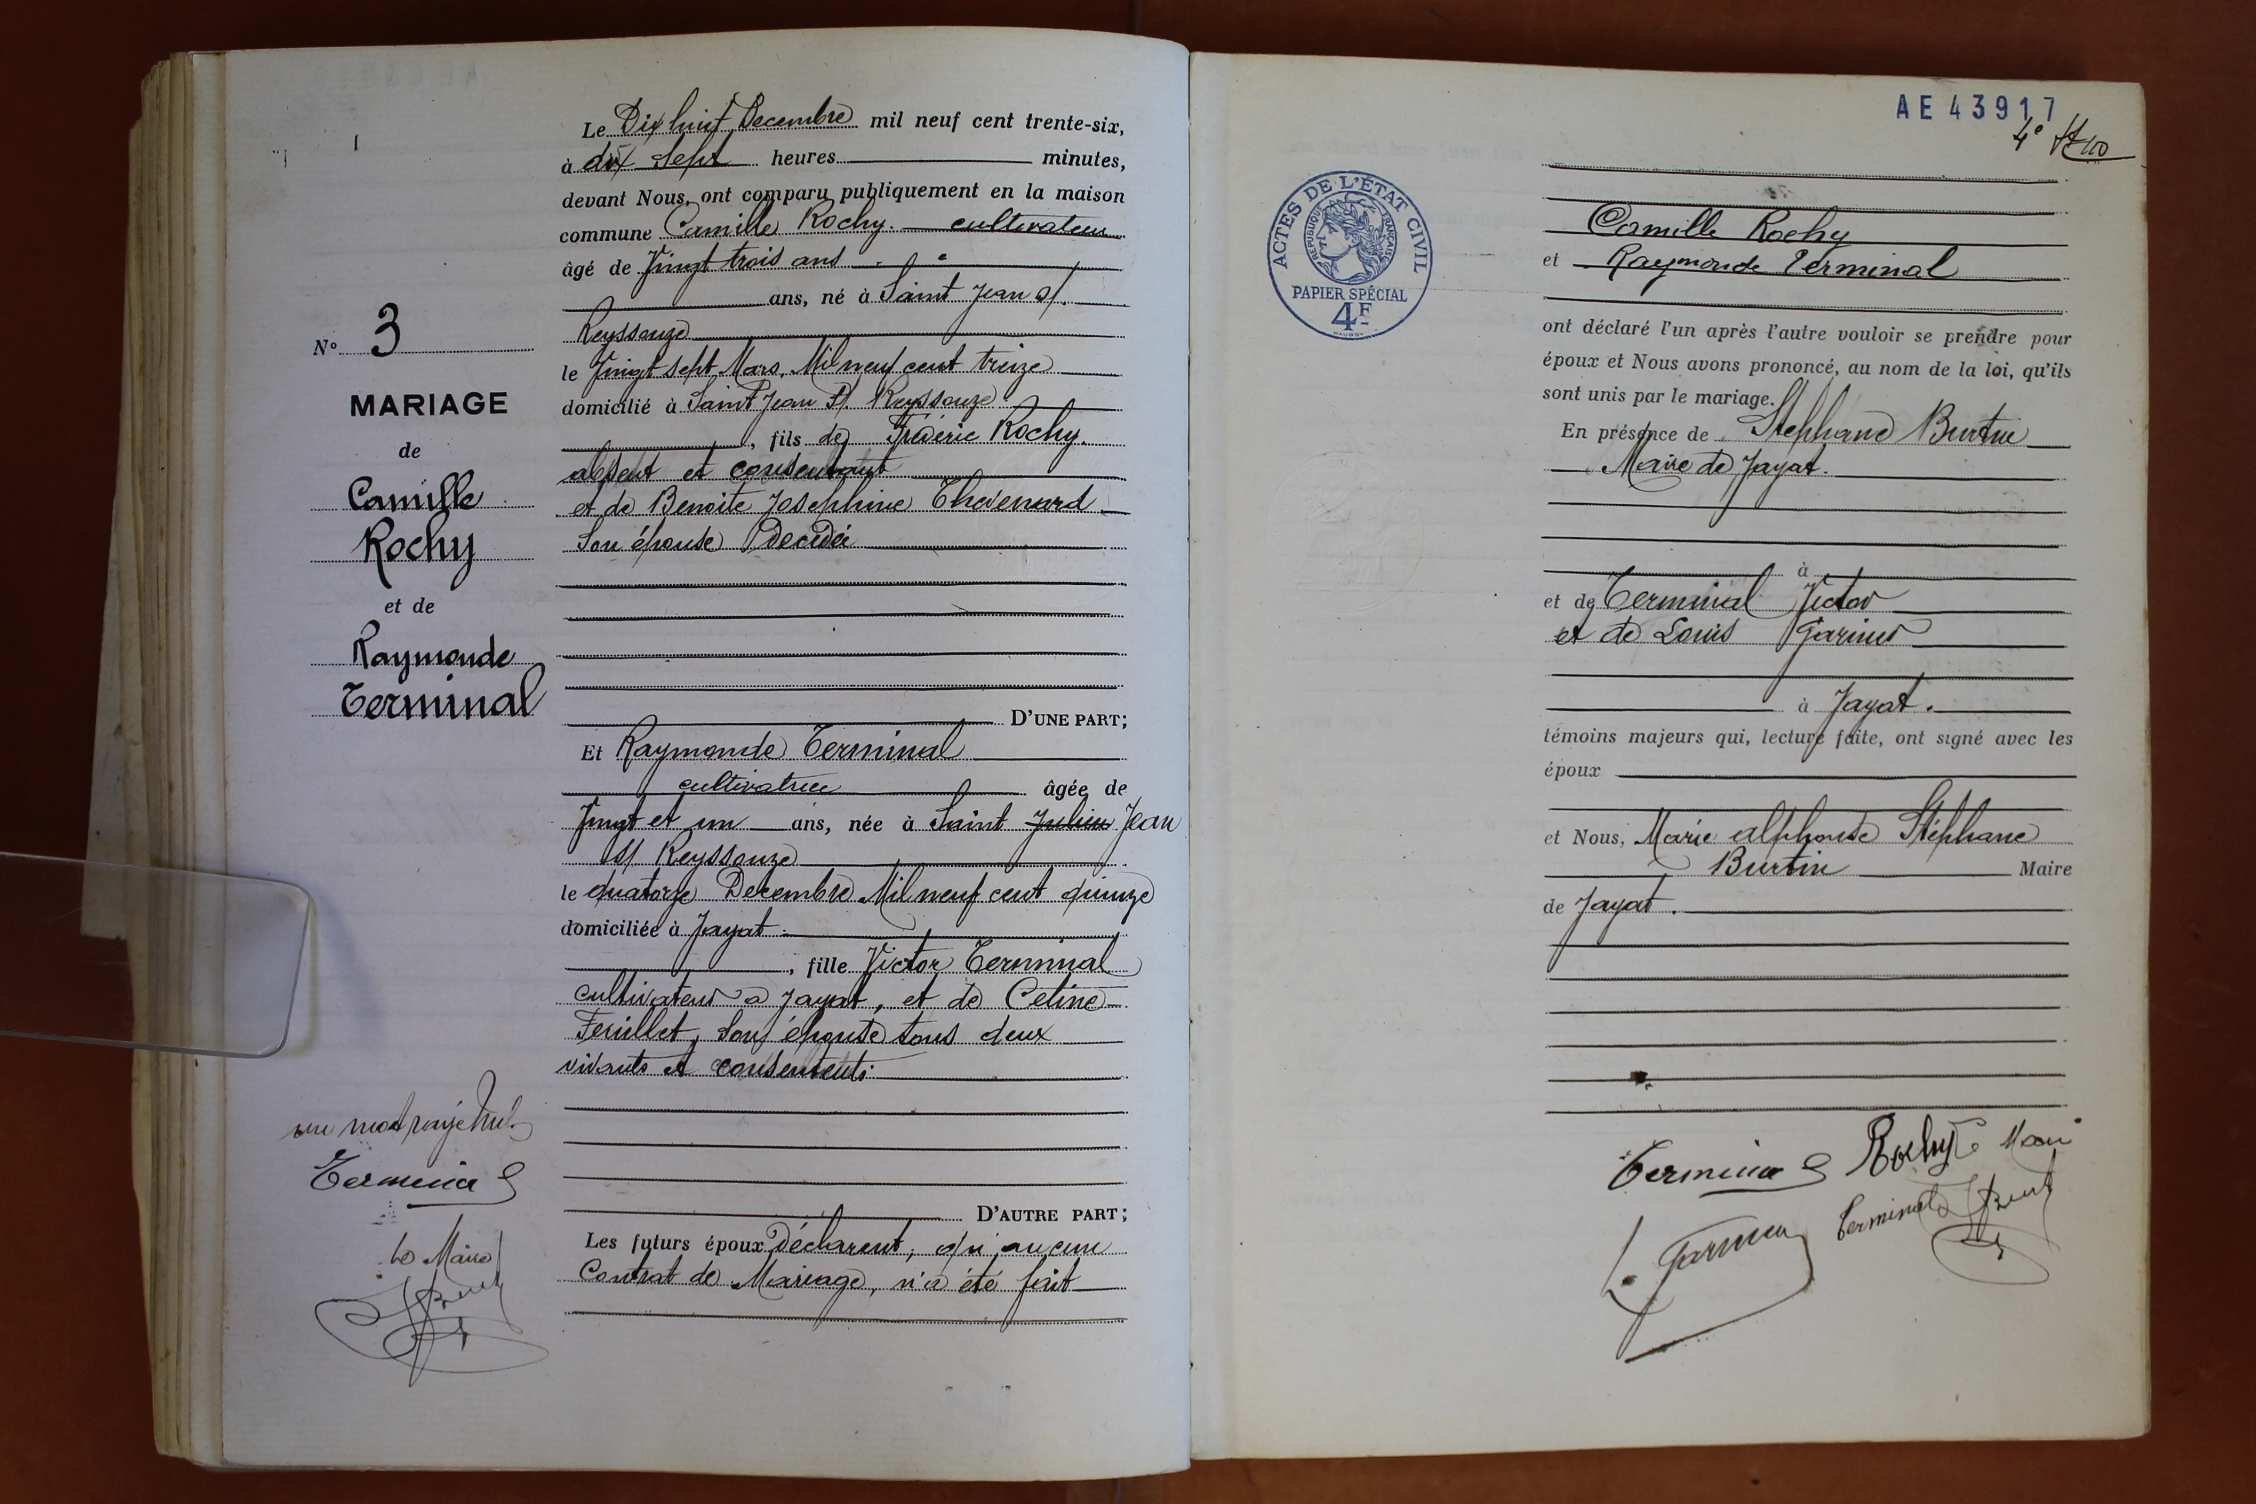 Le Dix huit Decembre mil neuf cent trente-six,
à dix sept heures minutes,
devant Nous, ont comparu publiquement en la maison
commune Camille Rochy. cultivateur
âgé de Vingt trois ans
ans, né à Saint Jean s/.
Reyssouze
le Vingt sept Mars, Mil neuf cent treize
domicilié à Saint Jean s/. Reyssouze
, fils de Fréderic Rochy.
absent et consentant
et de Benoite Josephine Thevenard
son épouse Decedée
D'UNE PART;
Et Raymonde Terminal
cultivatrice âgée de
Vingt et un ans, née à Saint Julien Jean
s/ Reyssouze
le quatorze Decembre Mil neuf cent quinze
domiciliée à Jayat.
, fille Victor Terminal
cultivateur a Jayat, et de Celine
Feuillet, son épouse tous deux
vivants et consentents
D'AUTRE PART;
Les futurs époux Déclarent, qu'aucun
Contrat de Mariage, n'a été fait
N° 3
MARIAGE
de
Camille
Rochy
et de
Raymonde
Terminal
un mot rayé nul.
Terminal
Le Maire
AE 43917
4e
ACTES DE L'ÉTAT CIVIL
RÉPUBLIQUE FRANÇAISE
PAPIER SPÉCIAL
4F
Camille Rochy
et Raymonde Terminal
ont déclaré l'un après l'autre vouloir se prendre pour
époux et Nous avons prononcé, au nom de la loi, qu'ils
sont unis par le mariage.
En présence de Stéphane Burtin
Maire de Jayat.
à
et de Terminal Victor
et de Louis Garnier
à Jayat.
témoins majeurs qui, lecture faite, ont signé avec les
époux
et Nous, Marie alphonse Stéphane
Burtin Maire
de Jayat.
Terminal Rochy C Le Maire
L. Garnier Terminal